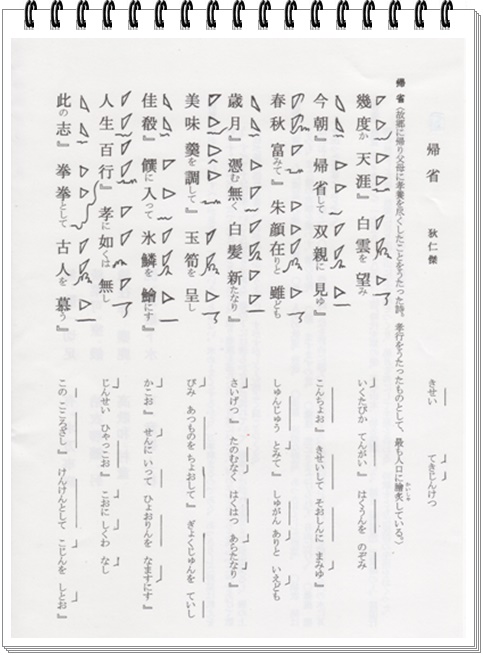 帰省 狄仁傑
帰省(故郷に帰り父母に孝養を尽くしたことをうたった詩。孝行をうたったものとして、最も人口に膾炙している。)
かいしゃ
幾度か 天涯』 白雲を 望み
今朝』 帰省して 双親に 見ゆ』
春秋 富みて』 朱顔 在りと 雖ども
歳月』 憑む無く 白髪 新たなり』
美味 羹を 調して』 玉筍を 呈し
佳殽』 饌に 入って 氷鱗を 鱠にす』
人生 百行』 孝に 如くは 無し
此の 志』 拳拳として 古人を 慕う』
きせい てきじんけつ
いくたびか てんがい』 はくうんを のぞみ
こんちょお』 きせいして そおしんに まみゆ』
しゅんじゅう とみて』 しゅがん ありと いえども
さいげつ』 たのむなく はくはつ あらたなり』
びみ あつものを ちょおして』 ぎょくじゅんを ていし
かこお』 せんに いって ひょおりんを なますにす』
じんせい ひゃっこお』 こおに しくわ なし
この こころざし』 けんけんとして こじんを しとお』